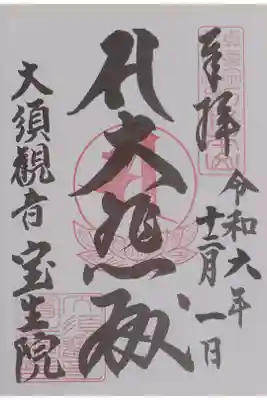 奉拝
令和六年
十二月一日
大悲殿
大須観音 宝生院